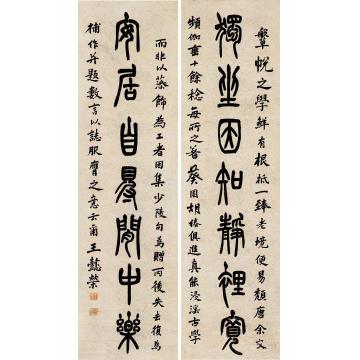 鞶帨之學鮮有根柢一臻老境便易頹唐余文
獨坐因知靜裡寬
十餘稔每所之俱進真能浸淫古學
而非以藻飾為工者因集少陵句為贈可後失去復為
安居自㝵閒中樂
補作并題數言以誌服膺之意云爾王懿榮